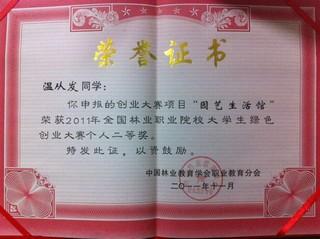 荣誉证书
温从发同学：
你申报的创业大赛项目“园艺生活馆”
荣获2011年全国林业职业院校大学生绿色
创业大赛个人二等奖。
特发此证，以资鼓励。
中国林业教育学会职业教育分会
二〇一一年十一月